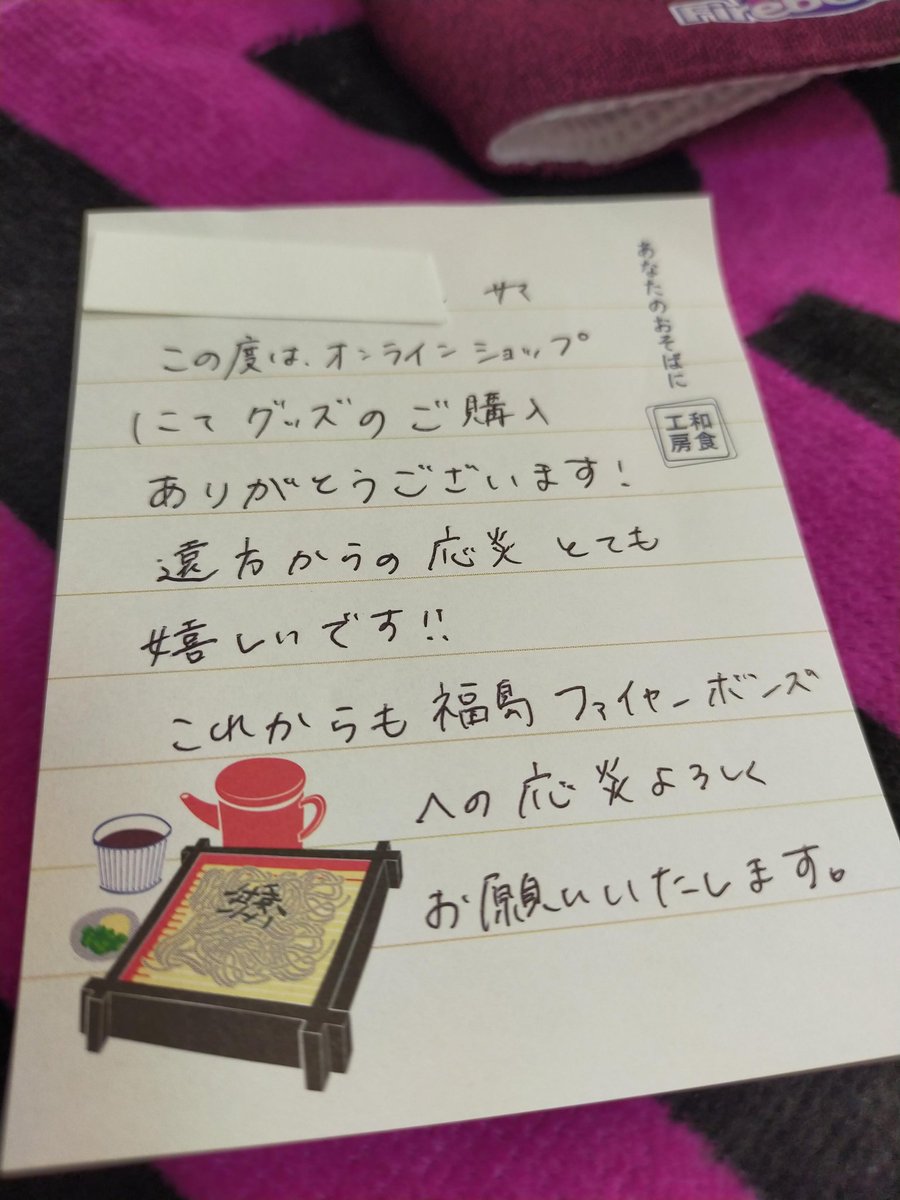 Firebo
サマ
あなたのおそばに
和食工房
この度は、オンラインショップ
にて グッズの ご購入
ありがとうございます!
遠方からの 応炎 とても
嬉しいです!!
これからも 福島 ファイヤーボンズ
への 応炎 よろしく
お願いいたします。